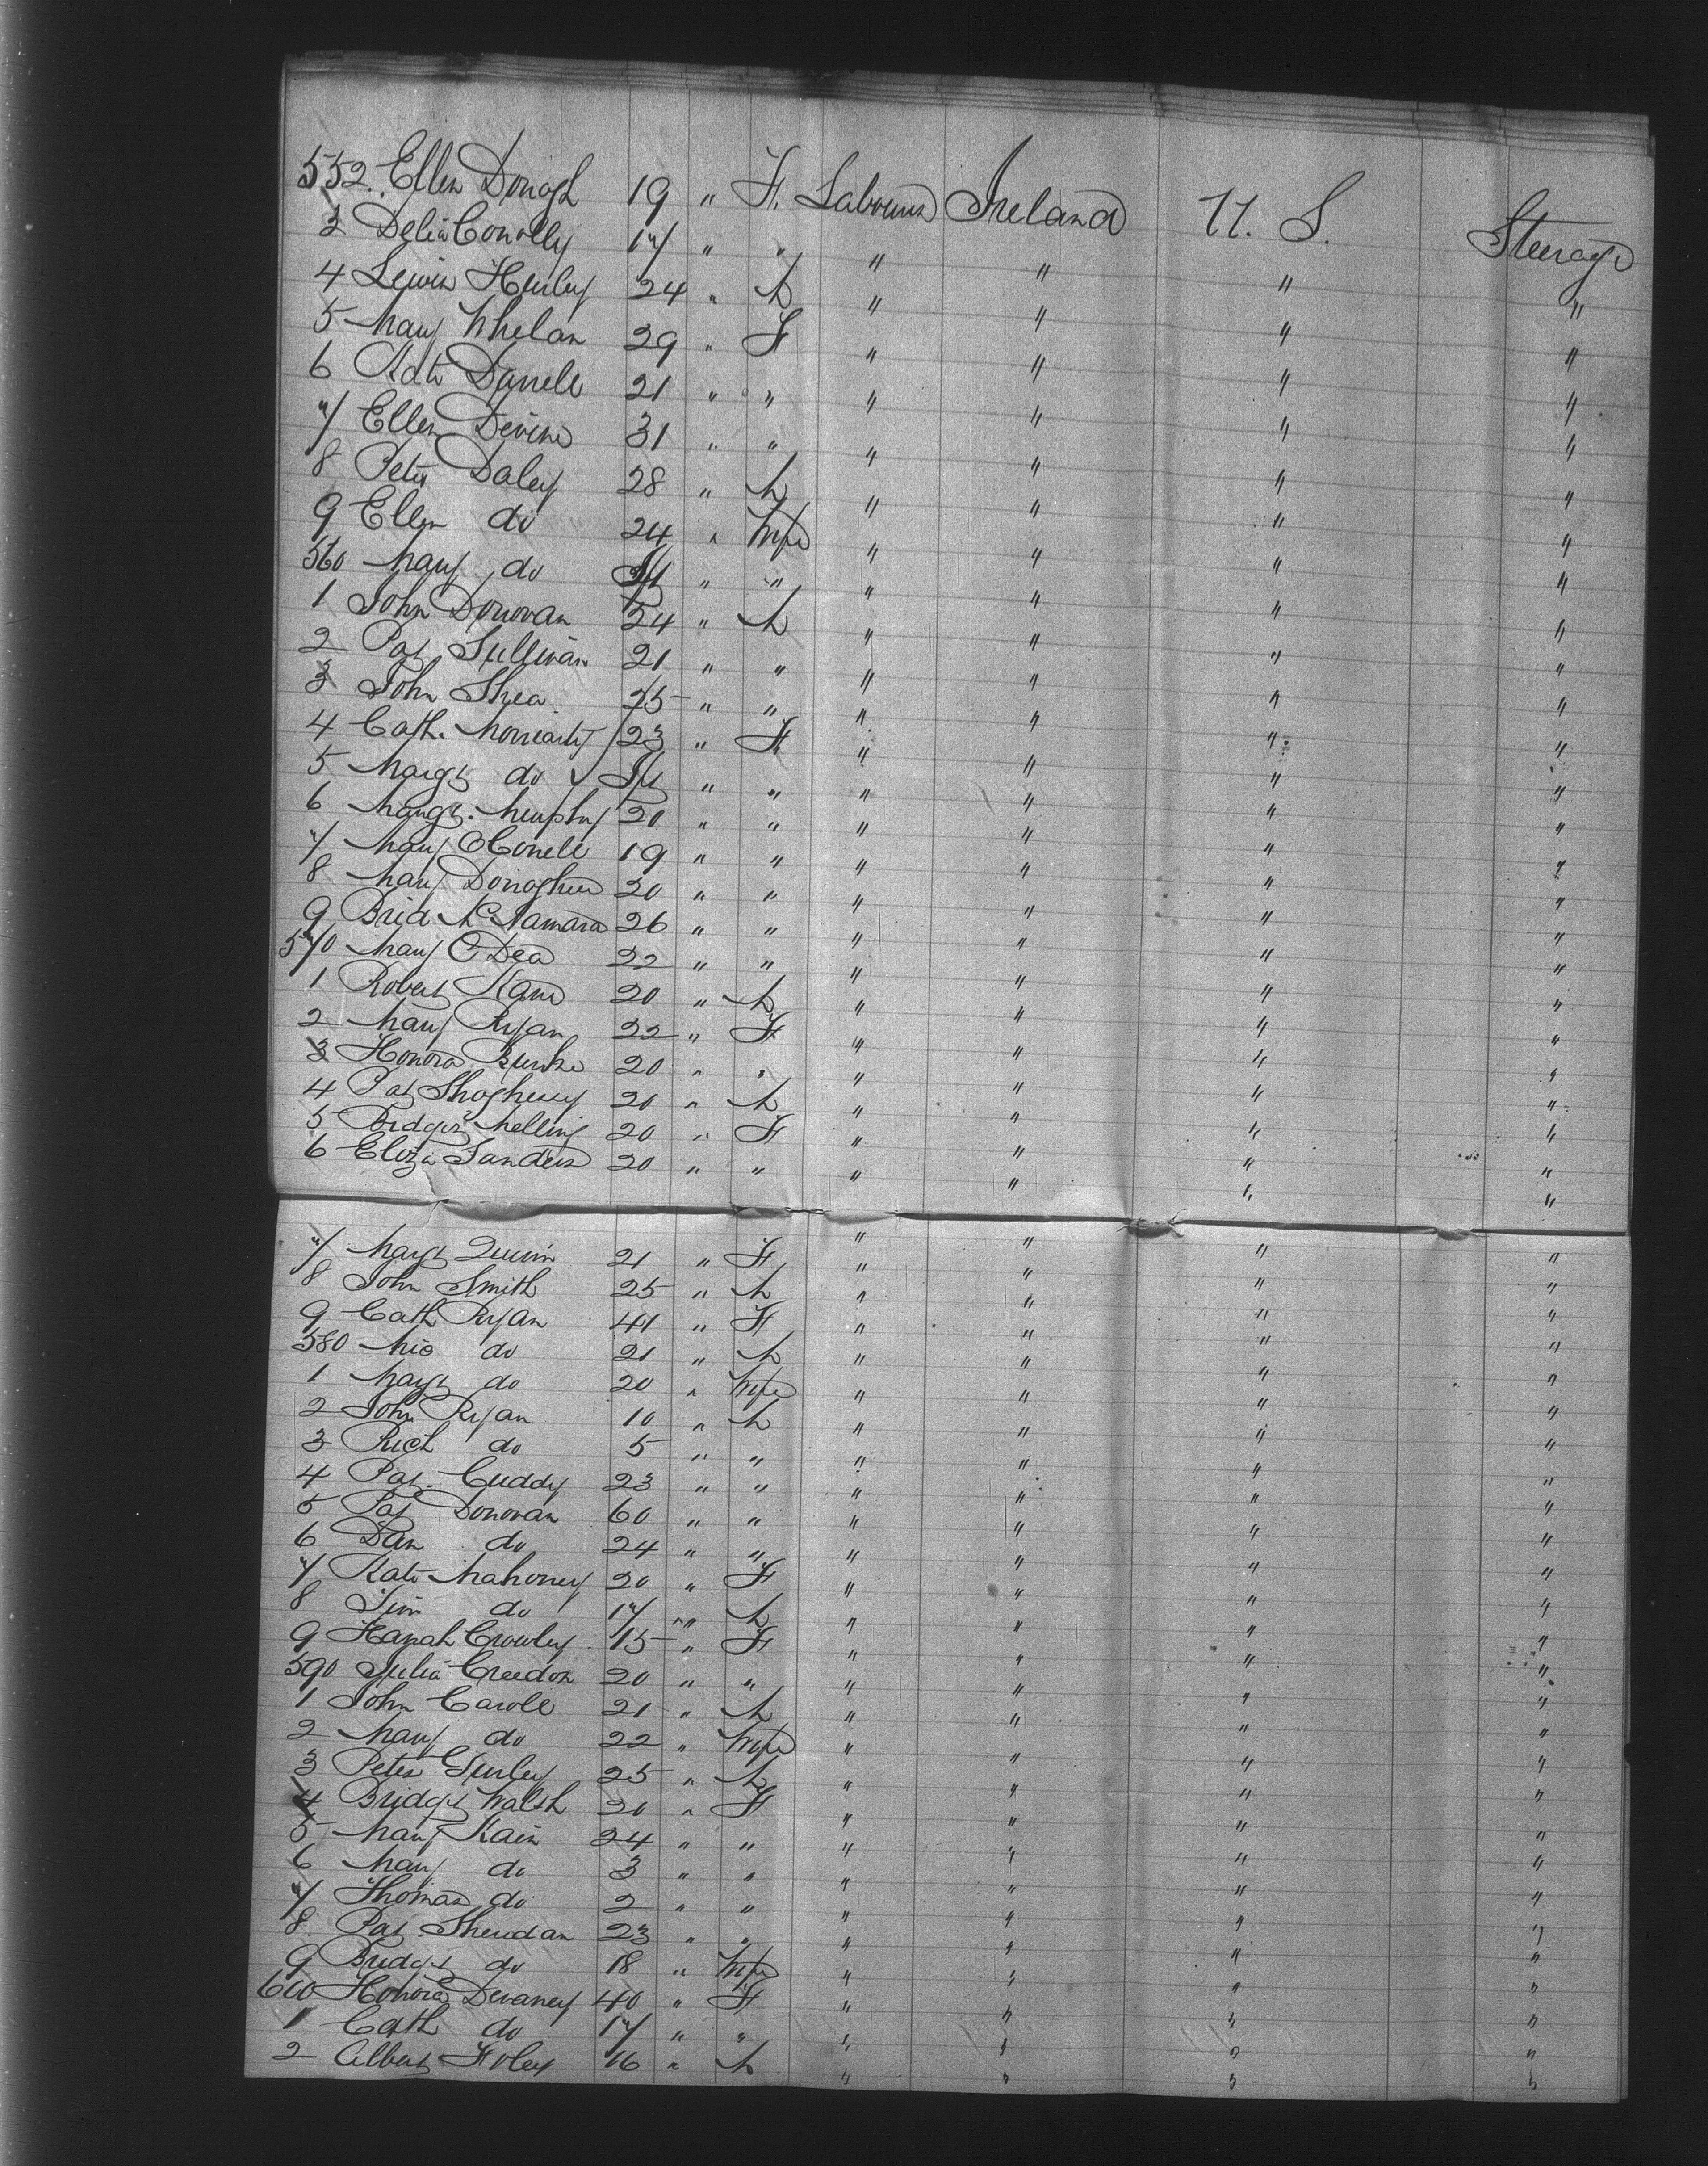 552 Ellen Donogh 19 " F. Labourers Ireland U. S. Steerage
3 Delia Conolly 17 " " " " " "
4 Lewis Hurley 24 " M " " " "
5 Mary Whelan 29 " F " " " "
6 Kate Daniels 21 " " " " " "
7 Ellen Devine 31 " " " " " "
8 Peter Daley 28 " M " " " "
9 Ellen do 24 " Wife " " " "
560 Mary do " " " " " "
1 John Donovan 24 " M " " " "
2 Pat Sullivan 21 " " " " " "
3 John Shea 25 " " " " " "
4 Cath. Moriarty 23 " F " " " "
5 Margt do " " " " " "
6 Margt. Murphy 20 " " " " " "
7 Mary OConell 19 " " " " " "
8 Mary Donoghue 20 " " " " " "
9 Brid McNamara 26 " " " " " "
570 Mary O Dea 22 " " " " " "
1 Robert Kane 20 " M " " " "
2 Mary Ryan 22 " F " " " "
3 Honora Burke 20 " " " " " "
4 Pat Shaghessy 20 " M " " " "
5 Bridget Melling 20 " F " " " "
6 Eliza Sanders 20 " " " " " "
7 Margt Quinn 21 " F " " " "
8 John Smith 25 " M " " " "
9 Cath Ryan 41 " F " " " "
580 Mic do 21 " M " " " "
1 Margt do 20 " Wife " " " "
2 John Ryan 10 " M " " " "
3 Rich do 5 " " " " " "
4 Pat. Cuddy 23 " " " " " "
5 Pat Donovan 60 " " " " " "
6 Dan do 24 " " " " " "
7 Kate Mahoney 20 " F " " " "
8 Tim do 17 " M " " " "
9 Hanah Crowley 15 " F " " " "
590 Julia Creedon 20 " " " " " "
1 John Carole 21 " M " " " "
2 Mary do 22 " Wife " " " "
3 Peter Gurley 25 " M " " " "
4 Bridget Walsh 20 " F " " " "
5 Mary Kain 24 " " " " " "
6 Mary do 3 " " " " " "
7 Thomas do 2 " " " " " "
8 Pat Sheridan 23 " " " " " "
9 Bridget do 18 " Wife " " " "
600 Honora Devaney 40 " F " " " "
1 Cath do 17 " " " " " "
2 Albert Foley 16 " M " " " "